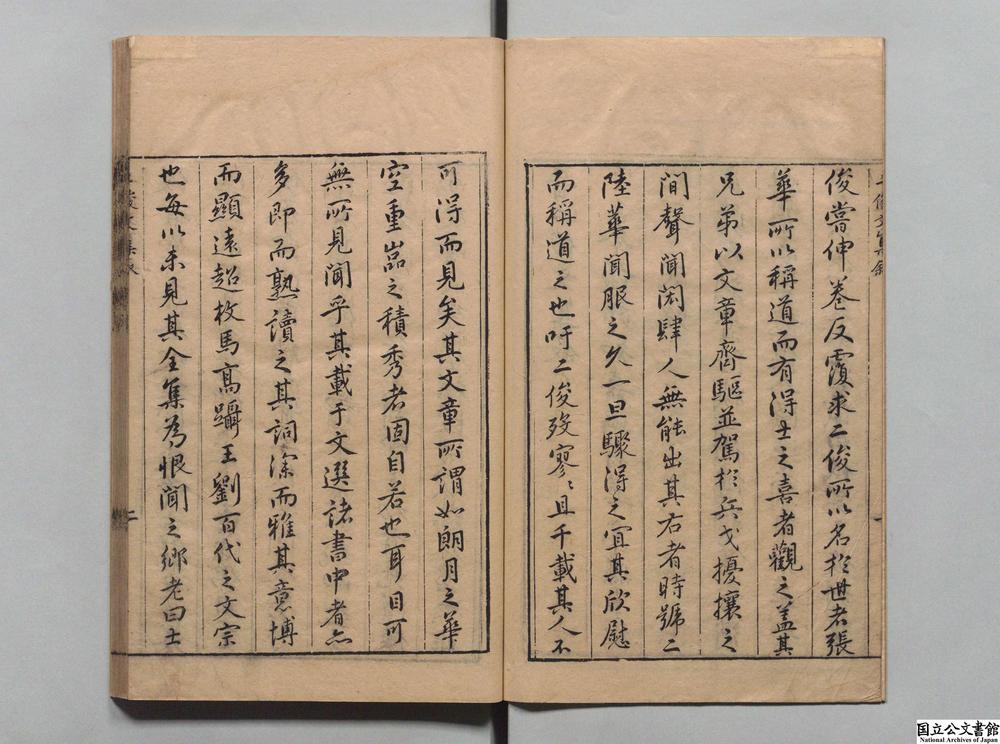 俊嘗伸卷反覆求二俊所以名於世者張
華所以稱道而有得士之喜者觀之盖其
兄弟以文章齊驅並駕於兵戈擾攘之
間聲聞閎肆人無能出其右者時號二
陸華聞服之久一旦驟得之宜其欣慰
而稱道之也吁二俊歿寥〻且千載其人不
可得而見矣其文章所謂如朗月之華
空重巖之積秀者固自若也耳目可
無所見聞乎其載于文選諸書中者亦
多即而熟讀之其詞深而雅其意博
而顯遠超枚馬高躡王劉百代之文宗
也每以未見其全集為恨聞之鄉老曰士
二
国立公文書館
National Archives of Japan